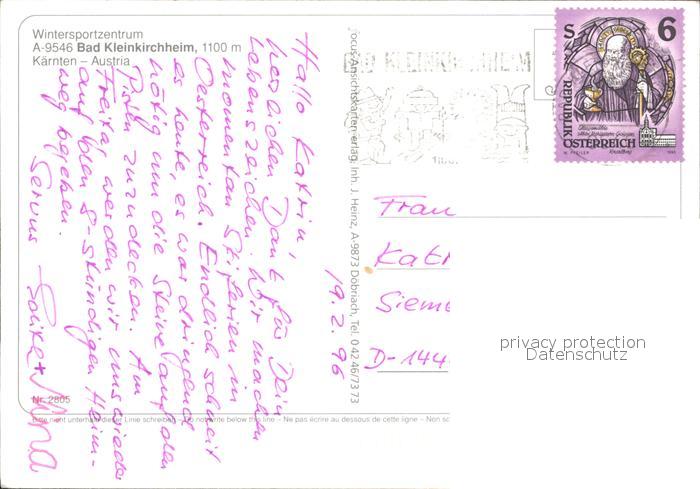 Wintersportzentrum
A-9546 Bad Kleinkirchheim, 1100 m
Kärnten – Austria
19.2.96
Hallo Katrin,
herzlichen Dank für Dein
Lebenszeichen. Wir machen
momentan Skiferien in
Österreich. Endlich schneit
es heute, es war dringend
nötig um die Steine auf den
Pisten zuzudecken. Am
Freitag werden wir uns wieder
auf den 8-stündigen Heim-
weg begeben.
Servus
+ Nina
Nr. 2805
Bitte nicht unterhalb dieser Linie schreiben – Do not write below the line – Ne pas écrire au dessous de cette ligne – Non sc
Focus-Ansichtskartenverlag, Inh. J. Heinz, A-9873 Döbriach, Tel. 0 42 46/73 73
BAD KLEINKIRCHHEIM
S 6
REPUBLIK
ÖSTERREICH
Frau
Kat
Sieme
D-144
privacy protection
Datenschutz